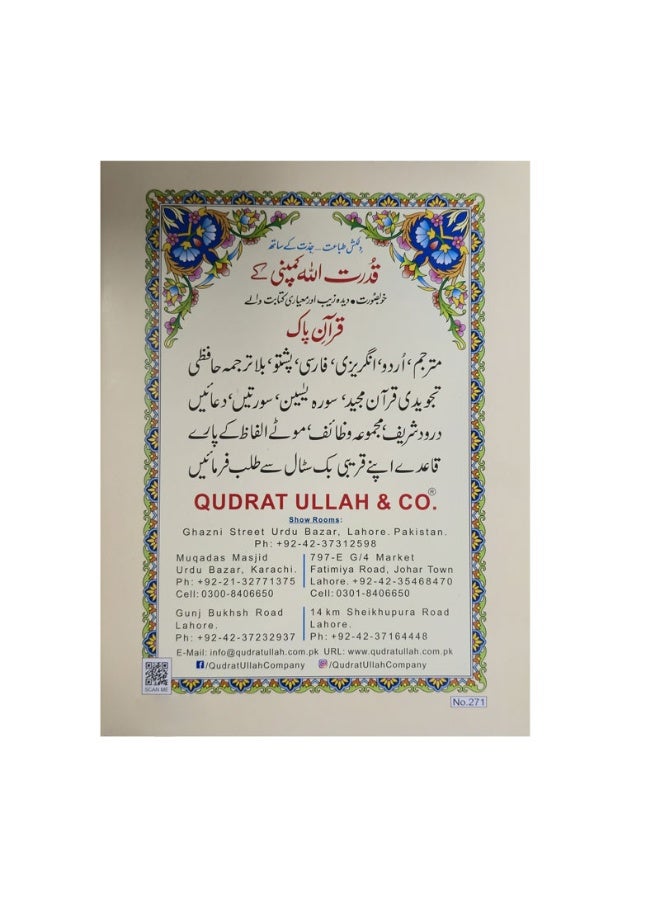 دلکش طباعت... جدت کے ساتھ
قُدرت اللہ کمپنی کے
خوبصورت • دیدہ زیب اور معیاری کتابت والے
قرآن پاک
مترجم، اُردو، انگریزی، فارسی، پشتو، بلا ترجمہ حافظی
تجویدی قرآن مجید، سورہ یٰسین، سورتیں، دعائیں
درود شریف، مجموعہ وظائف، موٹے الفاظ کے پارے
قاعدے اپنے قریبی بک سٹال سے طلب فرمائیں
QUDRAT ULLAH & CO.®
Show Rooms:
Ghazni Street Urdu Bazar, Lahore. Pakistan.
Ph: +92-42-37312598
Muqadas Masjid
Urdu Bazar, Karachi.
Ph: +92-21-32771375
Cell: 0300-8406650
797-E G/4 Market
Fatimiya Road, Johar Town
Lahore. +92-42-35468470
Cell: 0301-8406650
Gunj Bukhsh Road
Lahore.
Ph: +92-42-37232937
14 km Sheikhupura Road
Lahore.
Ph: +92-42-37164448
E-Mail: info@qudratullah.com.pk URL: www.qudratullah.com.pk
/QudratUllahCompany /QudratUllahCompany
SCAN ME
No.271